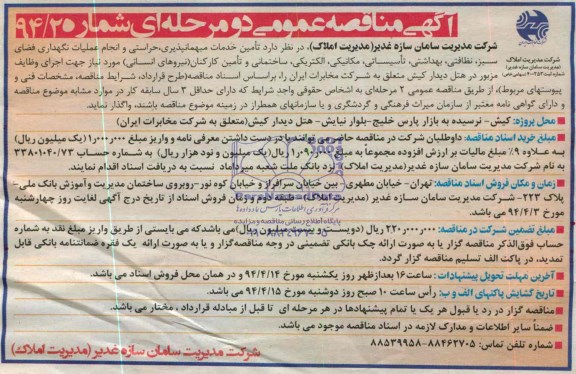 آگهی مناقصه عمومی دو مرحله‌ای شماره ۹۴/۲۰
شرکت مدیریت املاک
(مدیریت سامان سازه غدیر)
شرکت مدیریت سامان سازه غدیر(مدیریت املاک)، در نظر دارد تأمین خدمات میهمانپذیری،حراستی و انجام عملیات نگهداری فضای
سبز، نظافتی، بهداشتی، تأسیساتی، مکانیکی، الکتریکی، ساختمانی و تأمین کارکنان(نیروهای انسانی) مورد نیاز جهت اجرای وظایف
مزبور در هتل دیدار کیش متعلق به شرکت مخابرات ایران را، براساس اسناد مناقصه(طرح قرارداد، شرایط مناقصه، مشخصات فنی و
پیوستهای مربوط)، از طریق مناقصه عمومی ۲ مرحله‌ای به اشخاص حقوقی واجد شرایط که دارای حداقل ۳ سال سابقه کار در موارد مشابه موضوع مناقصه
و دارای گواهی نامه معتبر از سازمان میراث فرهنگی و گردشگری و یا سازمانهای همطراز در زمینه موضوع مناقصه باشند، واگذار نماید.
محل پروژه: کیش- نرسیده به بازار پارس خلیج-بلوار نیایش- هتل دیدار کیش(متعلق به شرکت مخابرات ایران)
مبلغ خرید اسناد مناقصه: داوطلبان شرکت در مناقصه حاضر می توانند با در دست داشتن معرفی نامه و واریز مبلغ ۱/۰۰۰/۰۰۰ریال (یک میلیون ریال)
به علاوه ۹٪ مبلغ مالیات بر ارزش افزوده مجموعاً به مبلغ ۱/۰۹۰/۰۰۰ریال(یک میلیون و نود هزار ریال) به شماره حساب ۳۳۸۰۱۰۴۰/۷۳
به نام شرکت مدیریت سامان سازه غدیر(مدیریت املاک) نزد بانک ملت شعبه میرداماد نسبت به دریافت اسناد اقدام نمایند.
زمان و مکان فروش اسناد مناقصه: تهران- خیابان مطهری- بین خیابان سرافراز و خیابان کوه نور-روبروی ساختمان مدیریت وآموزش بانک ملی-
پلاک ۲۲۳- شرکت مدیریت سامان سازه غدیر (مدیریت املاک)- طبقه دوم و زمان فروش اسناد از تاریخ درج آگهی لغایت روز چهارشنبه
مورخ ۹۴/۴/۳ می باشد.
مبلغ تضمین شرکت در مناقصه: ۲۲۰/۰۰۰/۰۰۰ ریال (دویست و بیست میلیون ریال)می باشدکه می بایستی از طریق واریز مبلغ نقد به شماره
حساب فوق‌الذکر مناقصه گزار یا به صورت ارائه چک بانکی تضمینی در وجه مناقصه‌گزار و یا به صورت ارائه یک فقره ضمانتنامه بانکی قابل
تمدید، در پاکت الف تسلیم مناقصه گزار گردد.
آخرین مهلت تحویل پیشنهادات: ساعت ۱۶ بعدازظهر روز یکشنبه مورخ ۹۴/۴/۱۴ و در همان محل فروش اسناد می باشد.
تاریخ گشایش پاکتهای الف و ب: رأس ساعت ۱۰ صبح روز دوشنبه مورخ ۹۴/۴/۱۵ می باشد.
مناقصه گزار در رد یا قبول هر یک یا تمام پیشنهادها در هر مرحله ای تا قبل از مبادله قرارداد ، مختار می باشد.
ضمناً سایر اطلاعات و مدارک لازمه در اسناد مناقصه موجود می باشد.
شماره تلفن تماس: ۸۸۴۶۲۷۰۵-۸۸۵۳۹۹۵۸
شرکت مدیریت سامان سازه غدیر (مدیریت املاک)